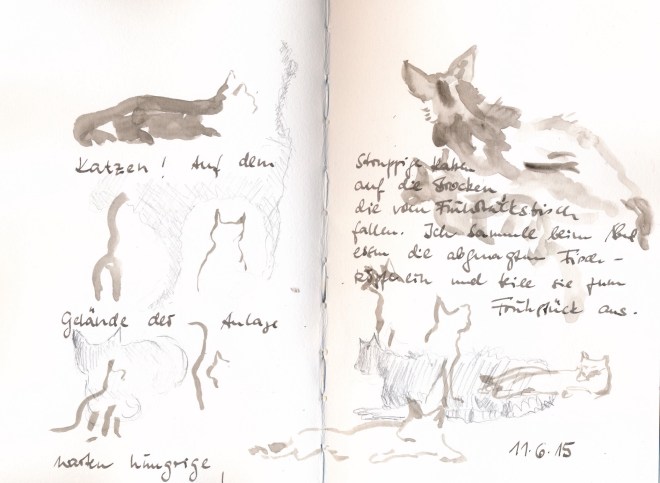 Katzen! Auf dem
Gelände der Anlage
warten hungrige,
Struppige Katzen
auf die Brocken
die vom Frühstückstisch
fallen. Ich sammle beim Abend
essen die abgenagten Fisch-
köpfe ein und teile sie zum
Frühstück aus.
11.6.15